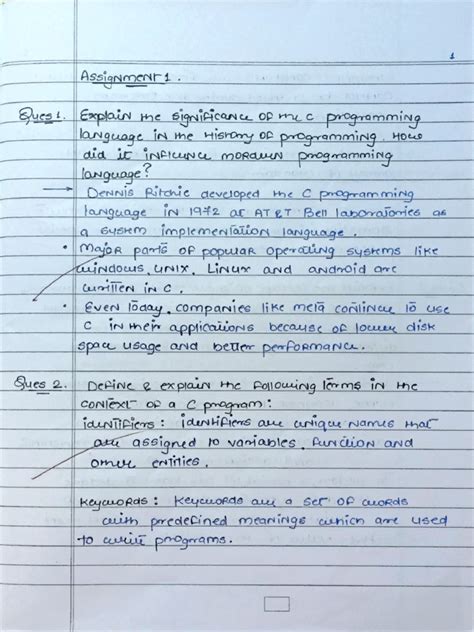 1
Assignment 1.
Ques 1. Explain the significance of the C programming
language in the History of programming. How
did it influence mordern programming
language?
→ Dennis Ritchie developed the C programming
language in 1972 at AT&T Bell laboratories as
a system implementation language.
• Major parts of popular operating systems like
windows, UNIX, Linux and android are
written in C.
• Even Today, companies like meta continue to use
C in their applications because of lower disk
space usage and better performance.
Ques 2. Define & explain the following terms in the
context of a C program:
identifiers: identifiers are unique names that
are assigned to variables, function and
other entities.
Keywords: Keywords are a set of words
with predefined meanings which are used
to write programs.